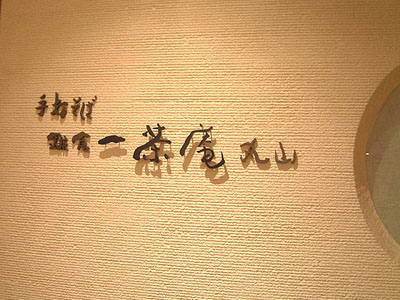 手打そば
鎌倉 一茶庵 丸山